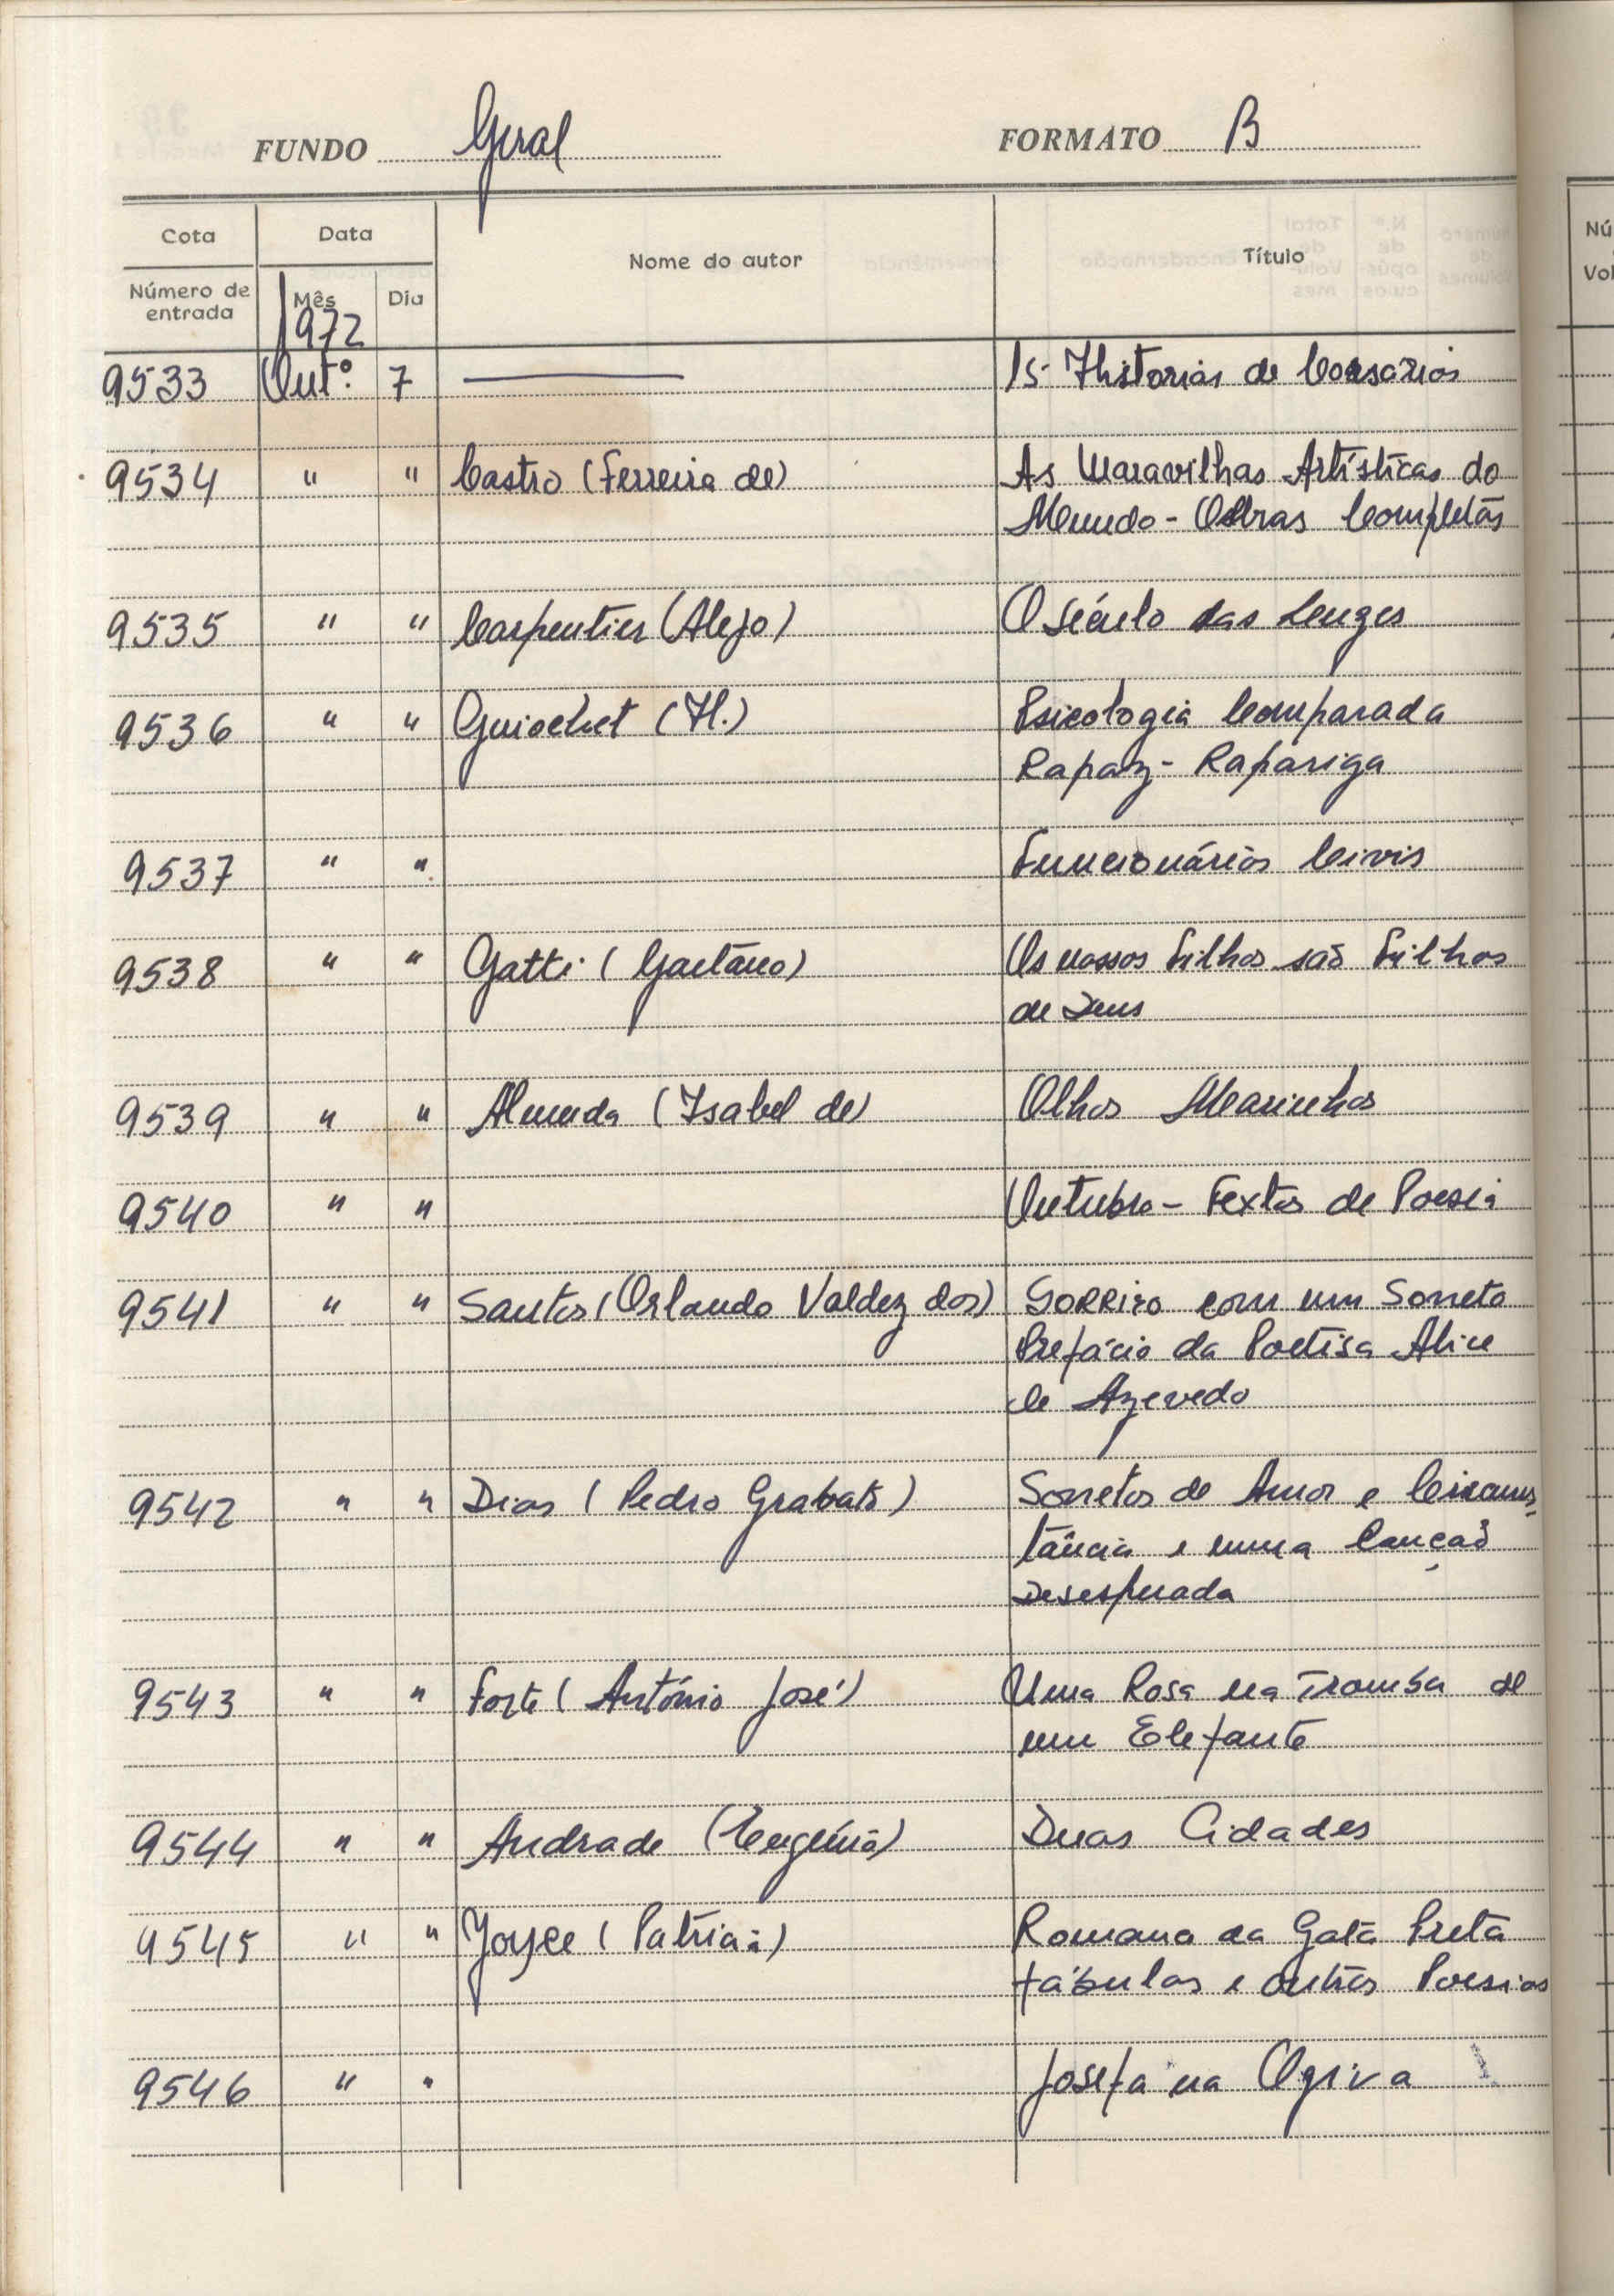 FUNDO Geral FORMATO B
Cota Data Nome do autor Título
Número de entrada Mês Dia
1972
9533 Outº. 7 ——— 15 Historias de Corsarios
9534 " " Castro (Ferreira de) As Maravilhas Artísticas do
Mundo - Obras Completas
9535 " " Carpentier (Alejo) O Século das Luzes
9536 " " Guiochet (H.) Psicologia Comparada
Rapaz - Rapariga
9537 " " Funcionários Civis
9538 " " Gatti (Gaetano) Os nossos Filhos são Filhos
de Deus
9539 " " Almeida (Isabel de) Olhos Marinhos
9540 " " Outubro - Textos de Poesia
9541 " " Santos (Orlando Valdez dos) Gorriro com um Soneto
Prefácio da Poetisa Alice
de Azevedo
9542 " " Dias (Pedro Grabato) Sonetos de Amor e Circuns
tância e numa Canção
Desesperada
9543 " " Forte (António José) Uma Rosa na Tromba de
um Elefante
9544 " " Andrade (Eugénio) Duas Cidades
9545 " " Joyce (Patricia) Romana da Gata Preta
fábulas e outras Poesias
9546 " " Josefa na Ogiva
Nú
Vol